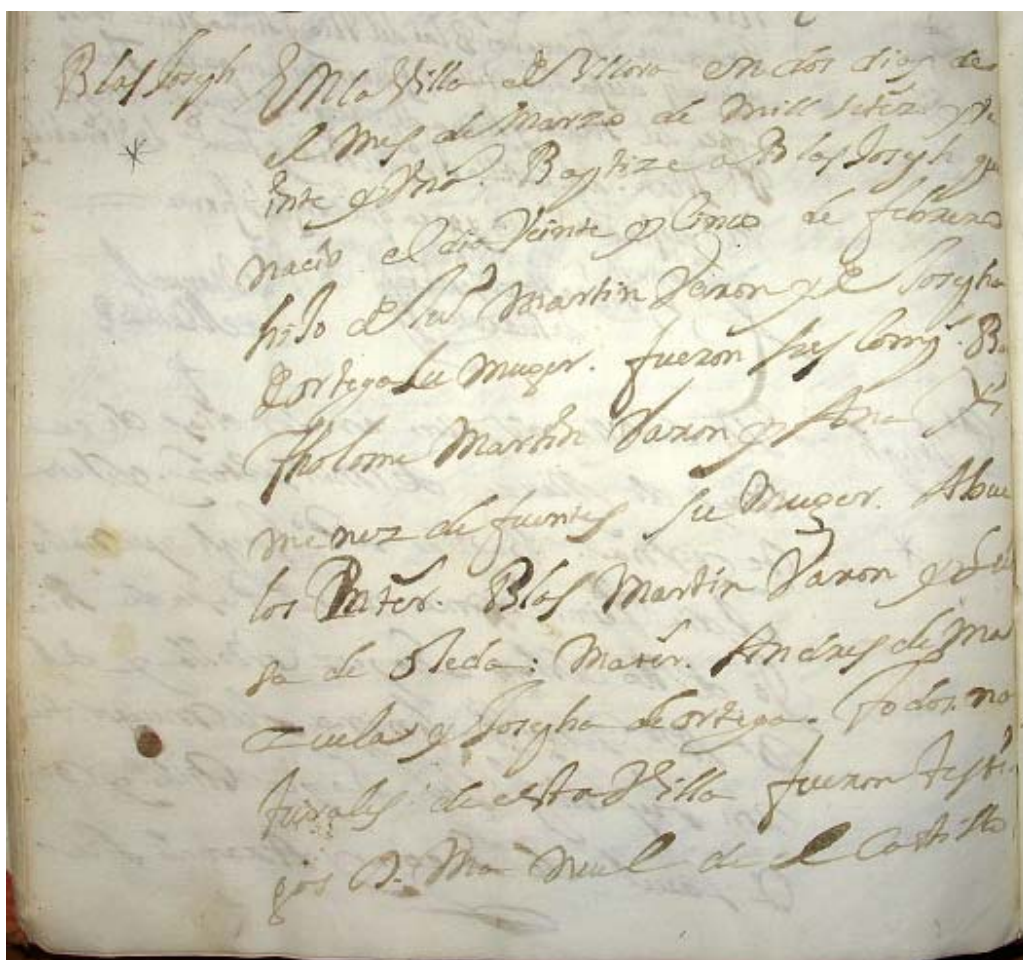 Blas Joseph
En la Villa de Yllora en dos dias de
el mes de Marzo de mill setez.s y ve
inte y Baptize a Blas Joseph que
nacio el dia Veinte y Cinco de febrero
hijo de Martin Varon y de Josepha
de ortega Su Muger. fueron sus Comp.s Bar
tholome Martin Varon y Ana Xi
menez de fuentes su Muger. Abue
los Pater. Blas Martin Varon y
sa de oleda: Mater. Andres de Ma
zuela y Josepha de ortega. todos na
turales de esta Villa fueron testi
gos D. Manuel de el Castillo